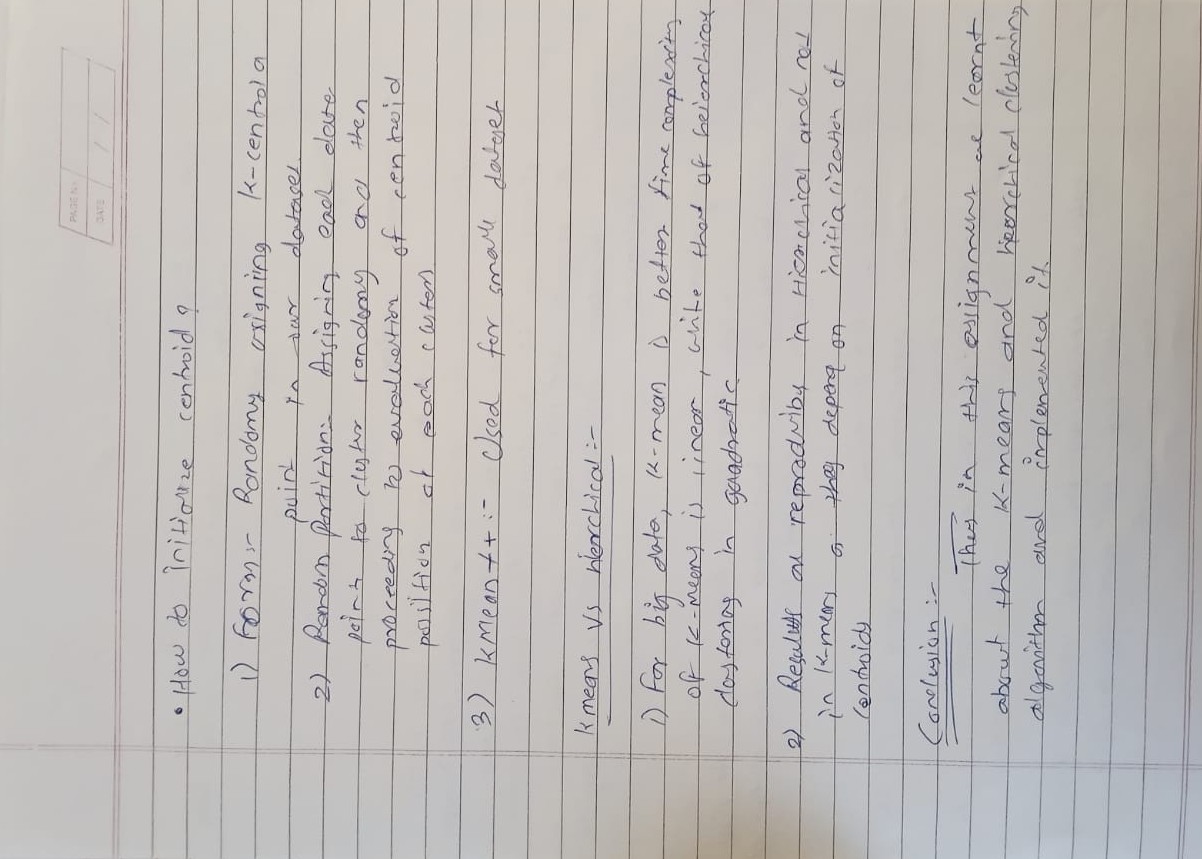 PAGE No.
DATE / /
• How to initialize centroid ?
1) Forgy :- Randomy assigning k-centroid
point in our dataset.
2) Random Partition:- Assigning each data
point to cluster randomy and then
proceeding to evaluation of centroid
position of each cluster
3) KMean++ :- Used for small dataset
K means Vs Hierchical :-
1) For big data, K-mean is better time complexity
of K-means is linear, while that of heierchical
clastering in quadratic
2) Results are in Hierchical and not
in K-means as they depend on initialization of
Centroids
Conclusion :-
Thus in this assignment we learnt
about the K-means and hierchical clustering
algorithm and implemented it